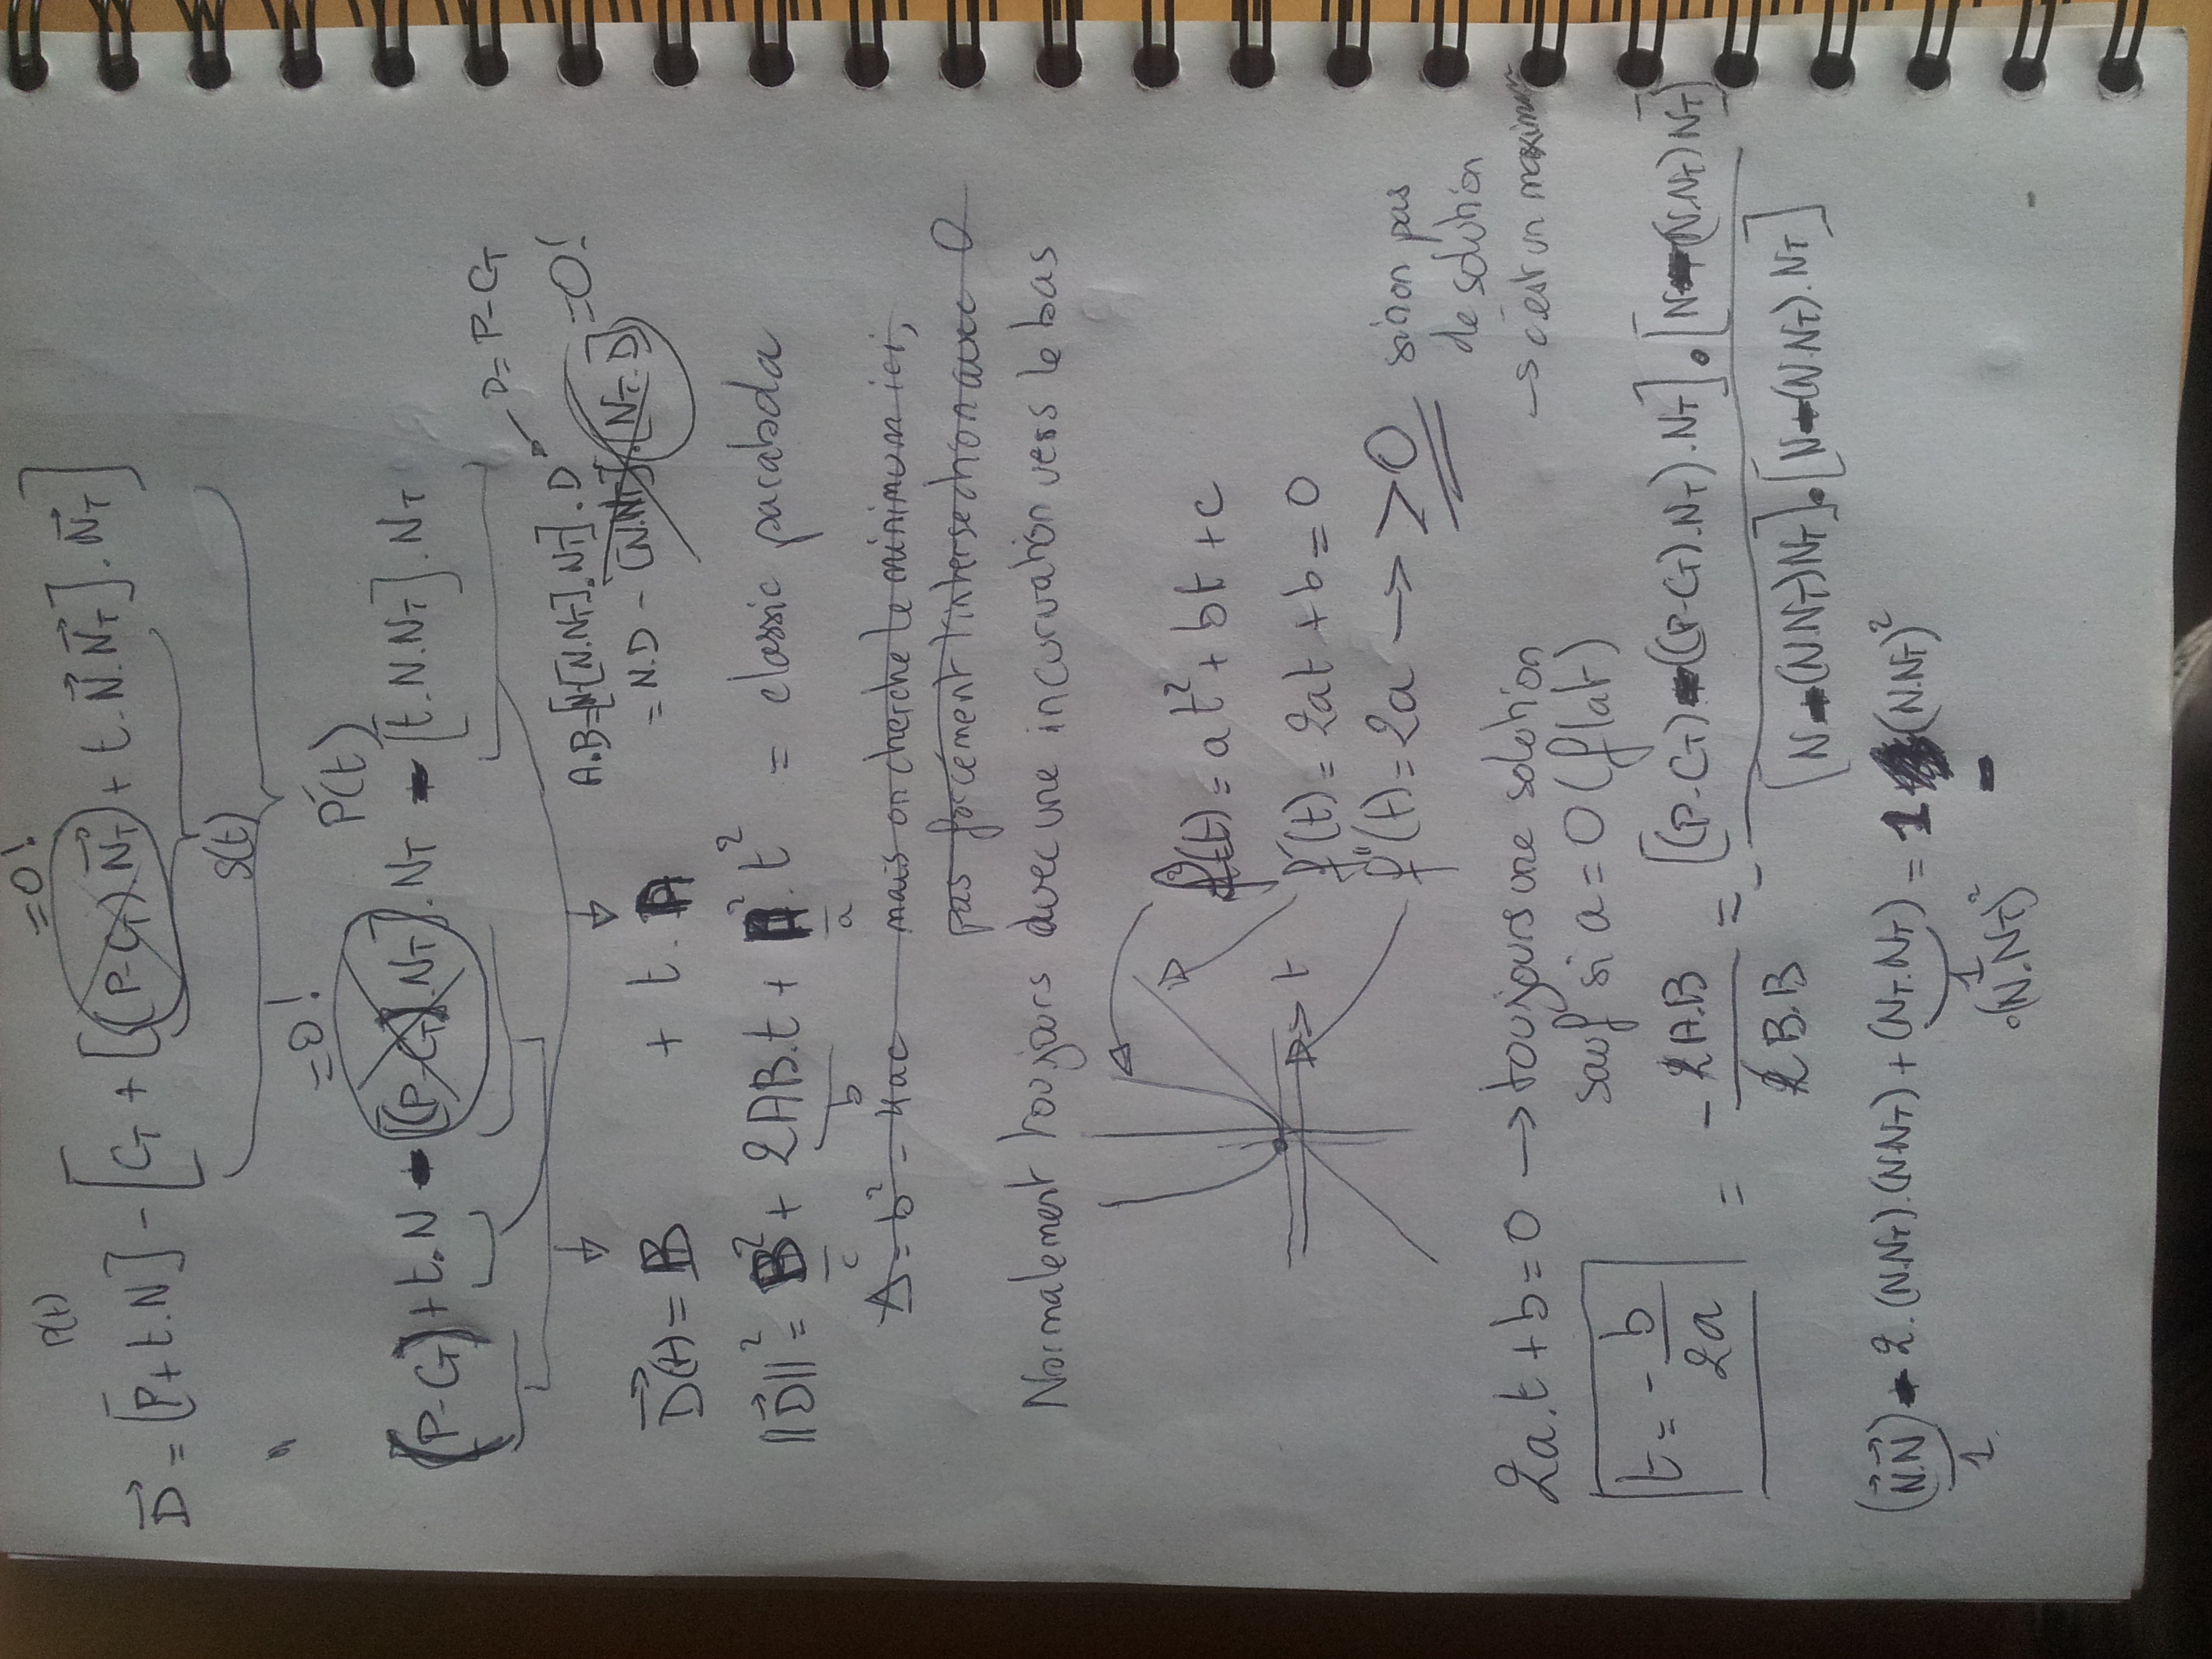 P(t)
D⃗ = [P + t.N] - [C_T + [(P-C_T).N⃗_T + t.N⃗.N⃗_T].N⃗_T]
=0!
S(t)
P'(t)
=0!
(P-C_T) + t.N - [(P-C_T).N_T].N_T - [t.N.N_T].N_T
D = P-C_T
A.B = [N-[N.N_T].N_T].D
= N.D - [N.N_T].[N_T.D] = 0!
D⃗(t) = B + t.A
||D⃗||² = B² + 2AB.t + A².t² = classic parabola
c b a
Δ = b² - 4ac mais on cherche le minimum ici,
pas forcément l'intersection avec 0
Normalement toujours avec une incurvation vers le bas
f(t) = at² + bt + c
f'(t) = 2at + b = 0
t
f''(t) = 2a → >0 sinon pas
de solution
→ c'est un maximum
2a.t + b = 0 → toujours une solution
sauf si a = 0 (flat)
t = -b/2a = -2A.B/2B.B = - [(P-C_T)-((P-C_T).N_T).N_T].[N-(N.N_T)N_T] / [N-(N.N_T)N_T].[N-(N.N_T).N_T]
(N⃗.N⃗) - 2.(N.N_T).(N.N_T) + (N_T.N_T) = 1 - (N.N_T)²
1 1
.(N.N_T)²